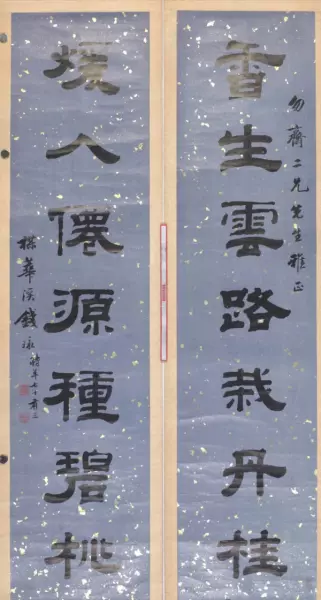 勿齋二兄先生雅正
香生雲路栽丹桂
煖入僊源種碧桃
楳華溪錢泳時年七十有三